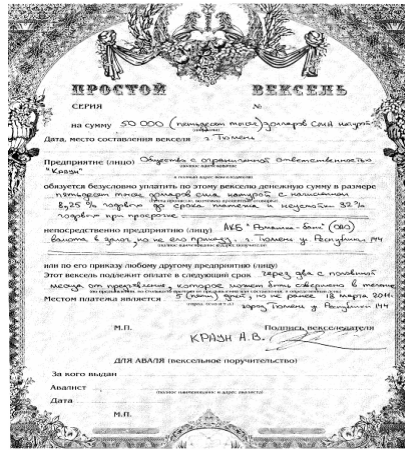 ПРОСТОЙ ВЕКСЕЛЬ
СЕРИЯ №
на сумму 50 000 (пятьдесят тысяч) долларов США натурой
Дата, место составления векселя г. Тюмень
Предприятие (лицо) Общество с ограниченной ответственностью
"Краун"
обязуется безусловно уплатить по этому векселю денежную сумму в размере
пятьдесят тысяч долларов США натурой с начислением
8,25 % годовых до срока платежа и неустойки 32 %
годовых при просрочке
непосредственно предприятию (лицу) АКБ (ОАО)
валюта в залог, но не его приказу, г. Тюмень ул. Республики 144
или по его приказу любому другому предприятию (лицу)
Этот вексель подлежит оплате в следующий срок через два с половиной
месяца от предъявления, которое может быть совершено в течение
5 (пяти) дней, но не ранее 18 марта 2011г.
Местом платежа является
город Тюмень ул. Республики 144
М.П. Подпись векселедателя
КРАУН А.В.
ДЛЯ АВАЛЯ (вексельное поручительство)
За кого выдан
Авалист
(полное наименование и адрес авалиста)
Дата
М.П.